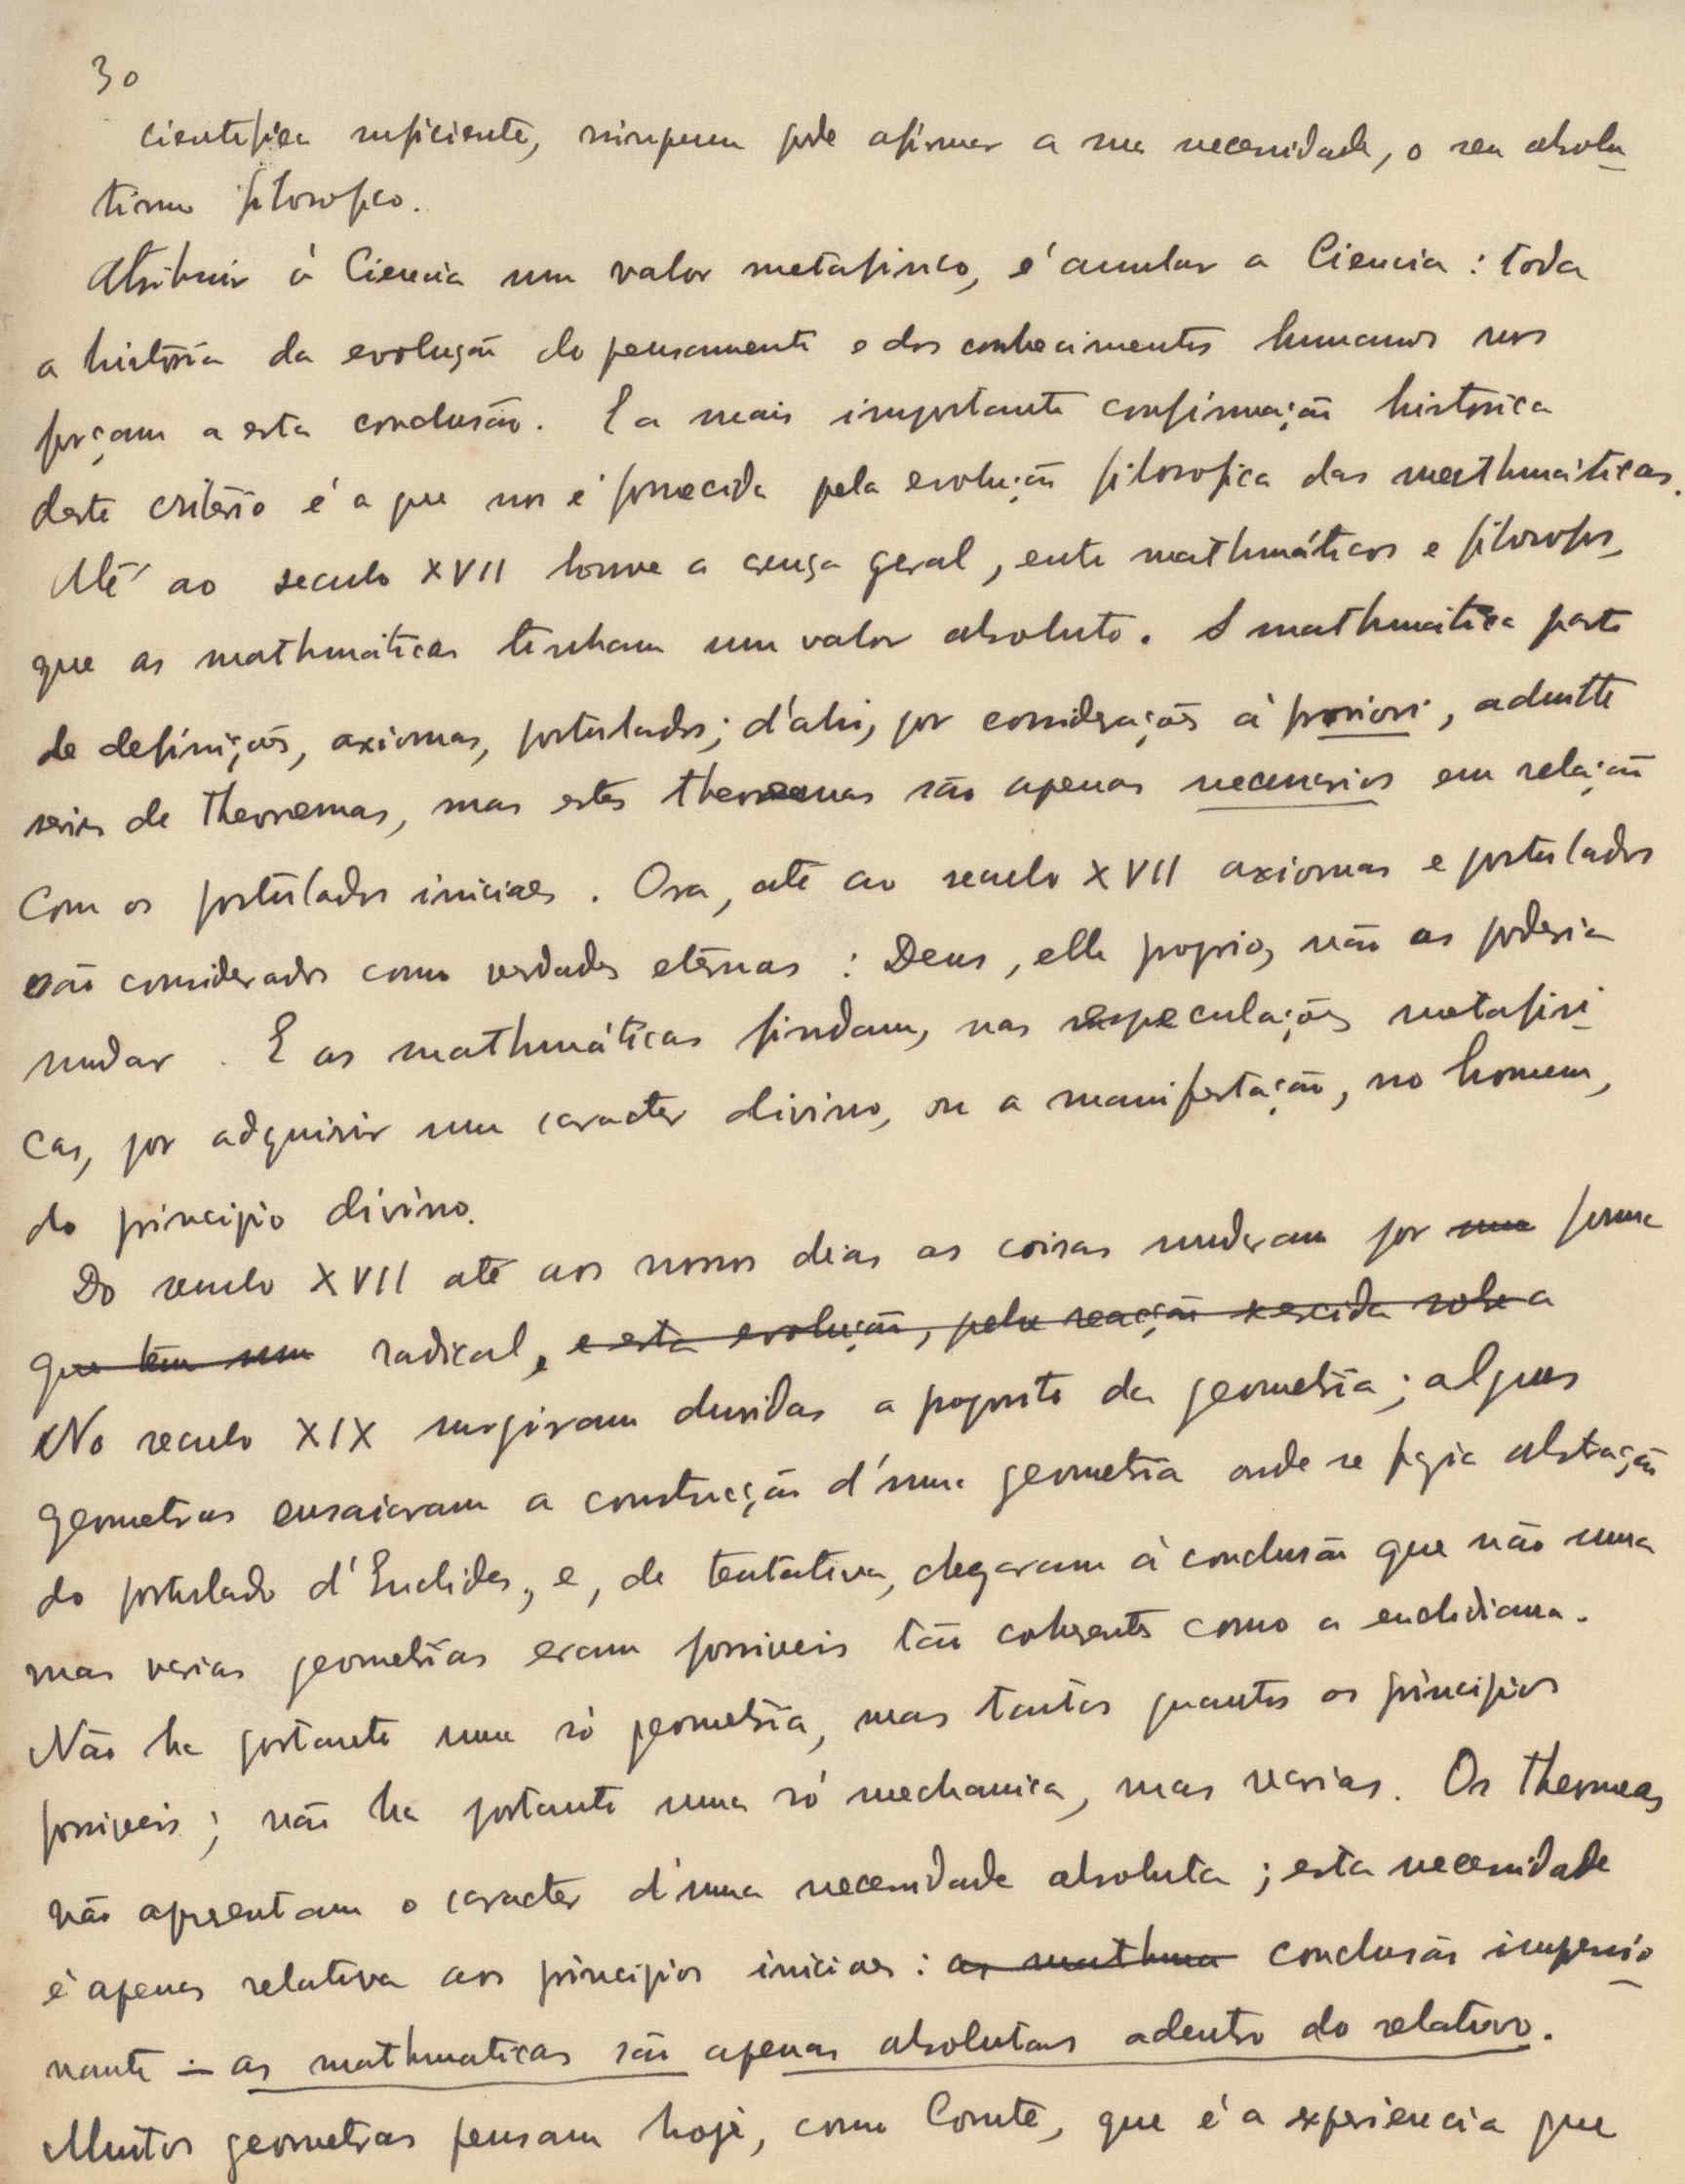 30
cientifica suficiente, ninguem pode afirmar a sua necessidade, o seu absolu-
tismo filosofico.
Atribuir á Ciencia um valor metafisico, é anular a Ciencia : toda
a história da evolução do pensamento e dos conhecimentos humanos nos
forçam a esta conclusão. E a mais importante confirmação historica
deste critério é a que nos é fornecida pela evolução filosofica das mathmáticas.
Até ao seculo XVII houve a crença geral, ente mathmáticos e filosofos,
que as mathmáticas tinham um valor absoluto. A mathmática parte
de definições, axiomas, postulados; d'ahi, por considerações à priori, admitte
series de theoremas, mas estes theoremas são apenas necessarios em relação
com os postulados iniciaes. Ora, até ao seculo XVII axiomas e postulados
são considerados como verdades eternas : Deus, elle proprio, não as poderia
mudar. E as mathmáticas findam, nas especulações metafisi-
cas, por adquirir um caracter divino, ou a manifestação, no homem,
do principio divino.
Do seculo XVII até aos nossos dias as coisas mudaram por uma forma
que tem um radical, e esta evolução, pela reacção exercida sobre a
No seculo XIX surgiram duvidas a proposito da geometria; alguns
geometras ensaiaram a construcção d'uma geometria onde se fazia abstração
do postulado d'Euclides, e, de tentativa, chegaram à conclusão que não uma
mas varias geometrias eram possiveis tão coherentes como a euclidiana.
Não ha portanto uma só geometria, mas tantas quantos os principios
possiveis; não ha portanto uma só mechanica, mas varias. Os theormeas
não apresentam o caracter d'uma necessidade absoluta; esta necessidade
é apenas relativa aos principios iniciaes : as mathma conclusão impressio-
nante – as mathmaticas são apenas absolutas adentro do relativo.
Muitos geometras pensam hoje, como Comte, que é a experiencia que